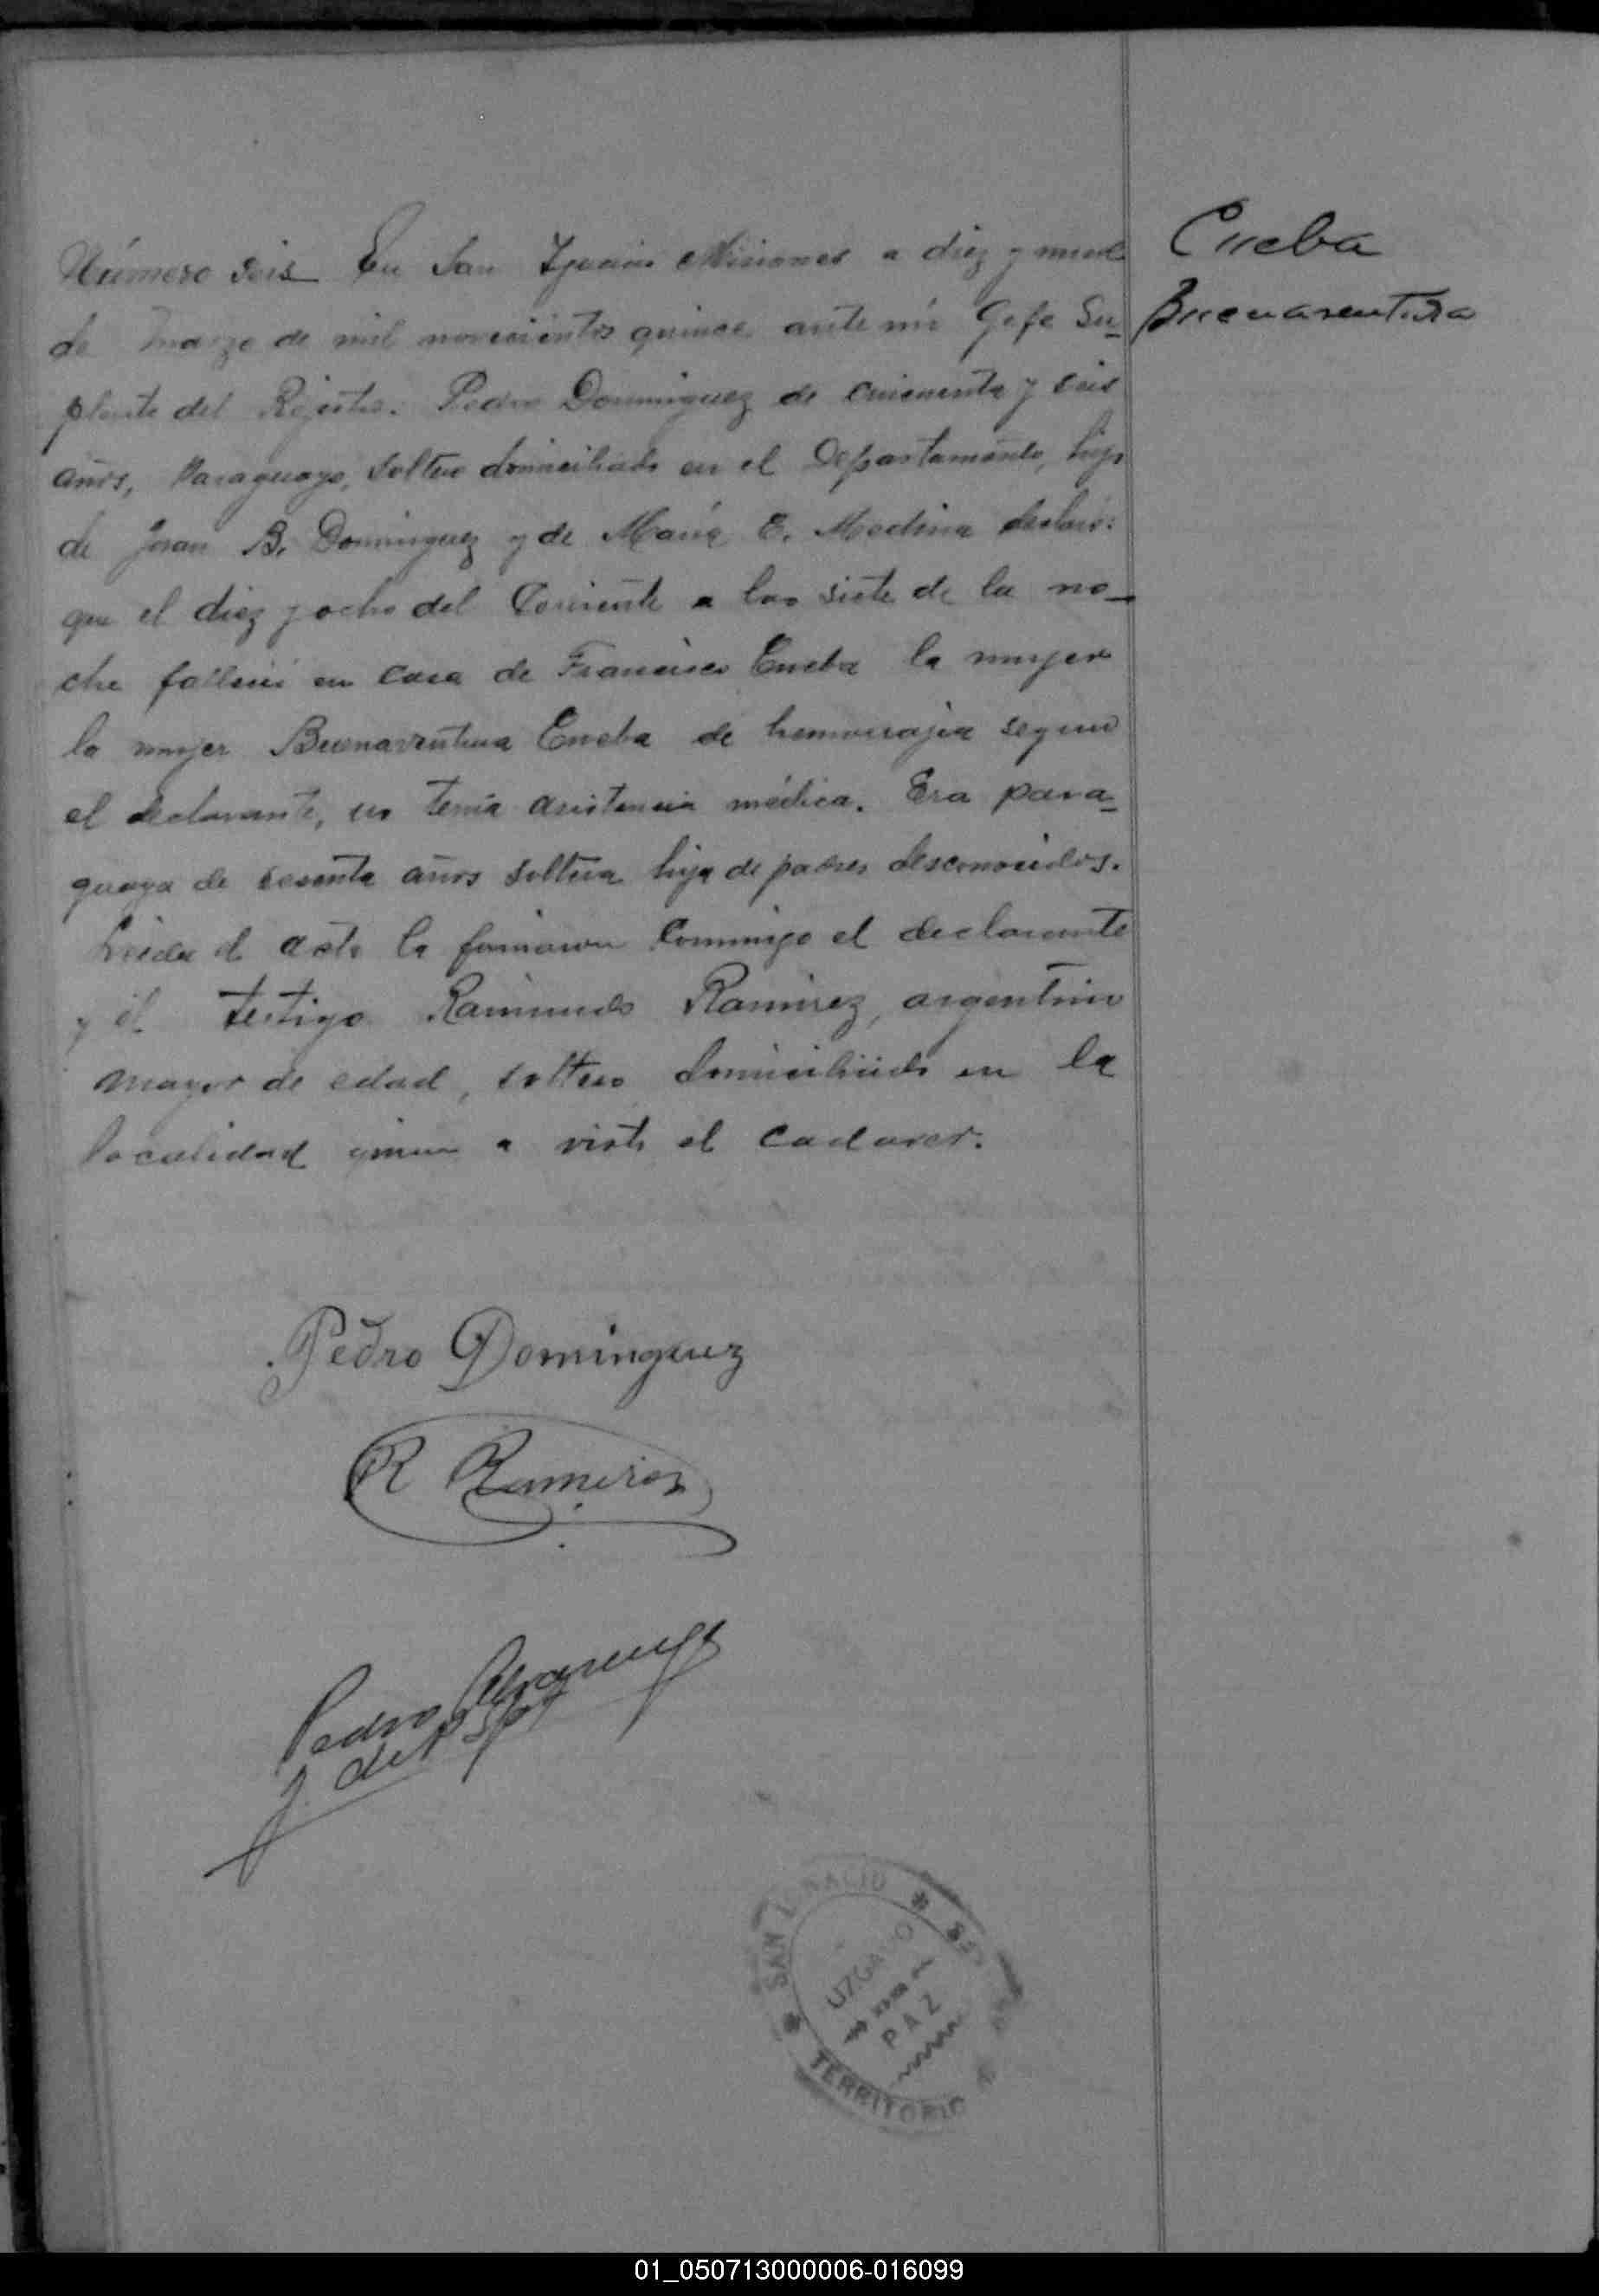 Número seis En San Ygnacio Misiones a diez y nueve
Cueba
Buenaventura
de Marzo de mil novecientos quince ante mi Gefe Su-
plente del Rejistro. Pedro Dominguez de cincuenta y seis
años, Paraguayo, soltero domiciliado en el Departamento, hijo
de Juan B. Dominguez y de María E. Medina declaró:
que el diez y ocho del Corriente a las siete de la no-
che falleció en casa de Francisco Cueba la mujer
la mujer Buenaventura Cueba de hemorrajia segun
el declarante, no tenía asistencia médica. Era para-
guaya de sesenta años soltera hija de padres desconocidos.
Leida el acta la firmaron conmigo el declarante
y el testigo Raimundo Ramirez, argentino
mayor de edad, soltero domiciliado en la
localidad quien a visto el cadaver.
Pedro Dominguez
R Ramirez
Pedro
J. de P.
SAN IGNACIO
JUZGADO
PAZ
TERRITORIO
01_050713000006-016099